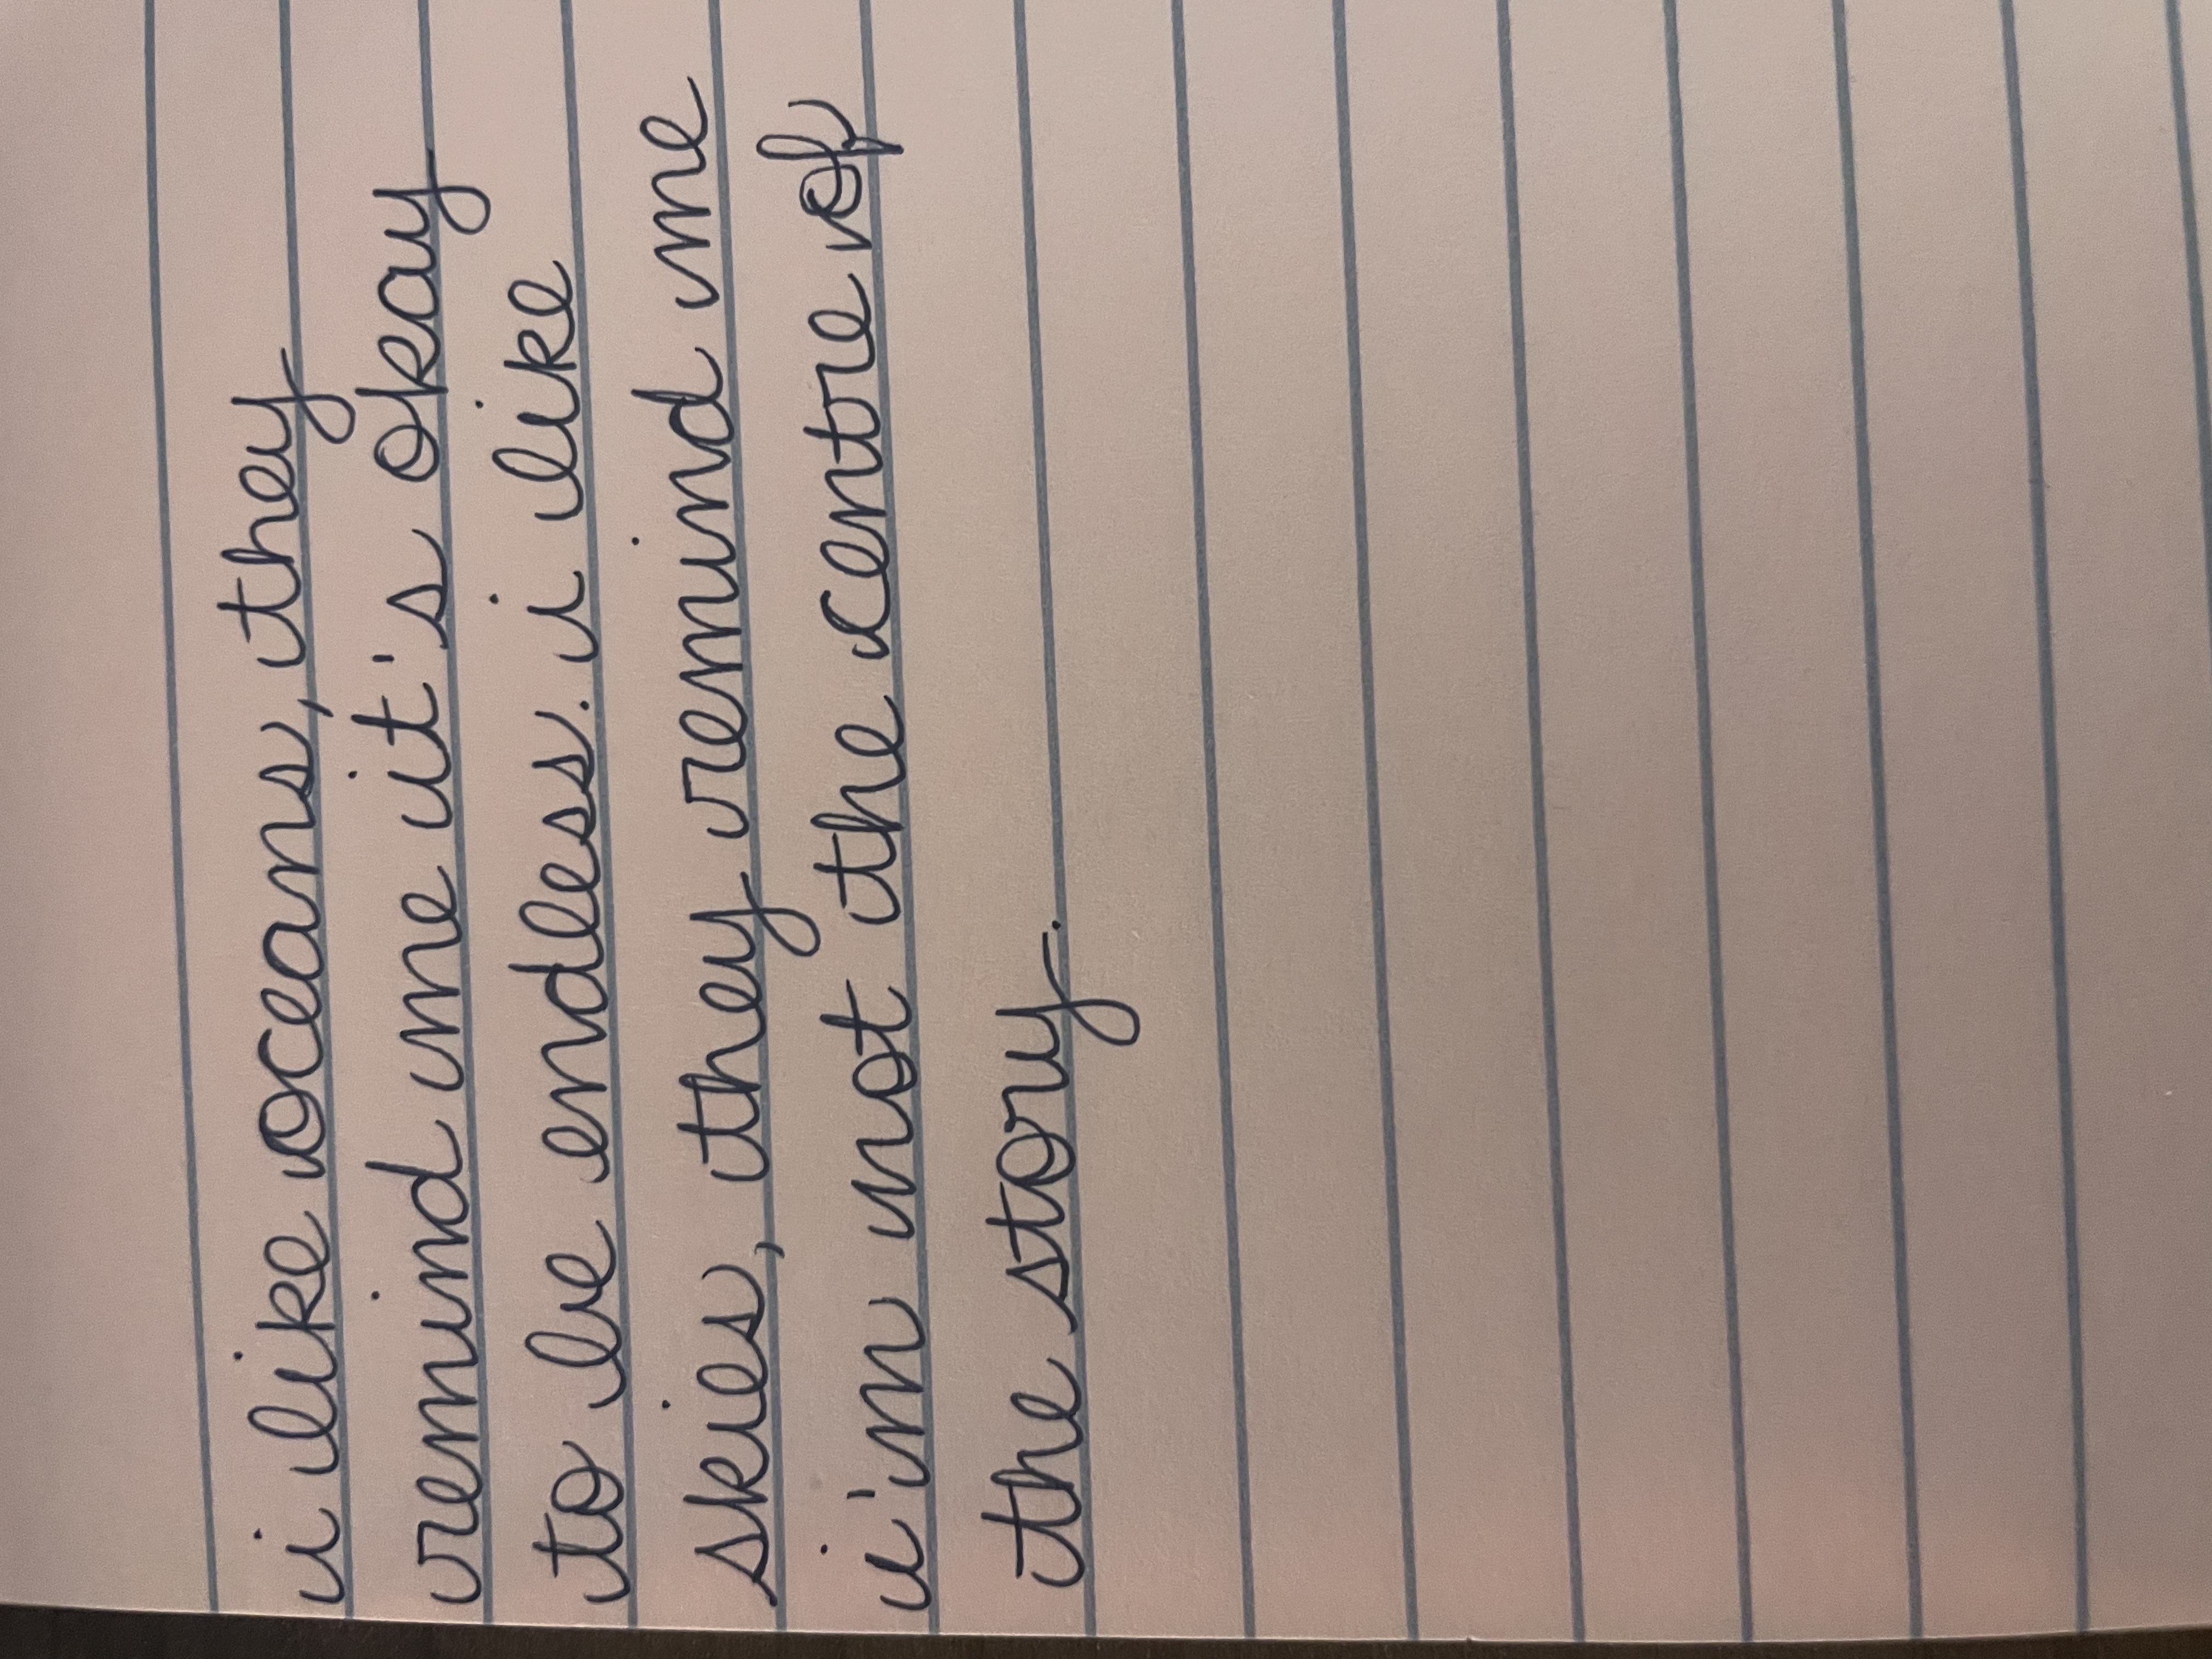 i like oceans, they
remind me it's okay
to be endless. i like
skies, they remind me
i'm not the centre of
the story.